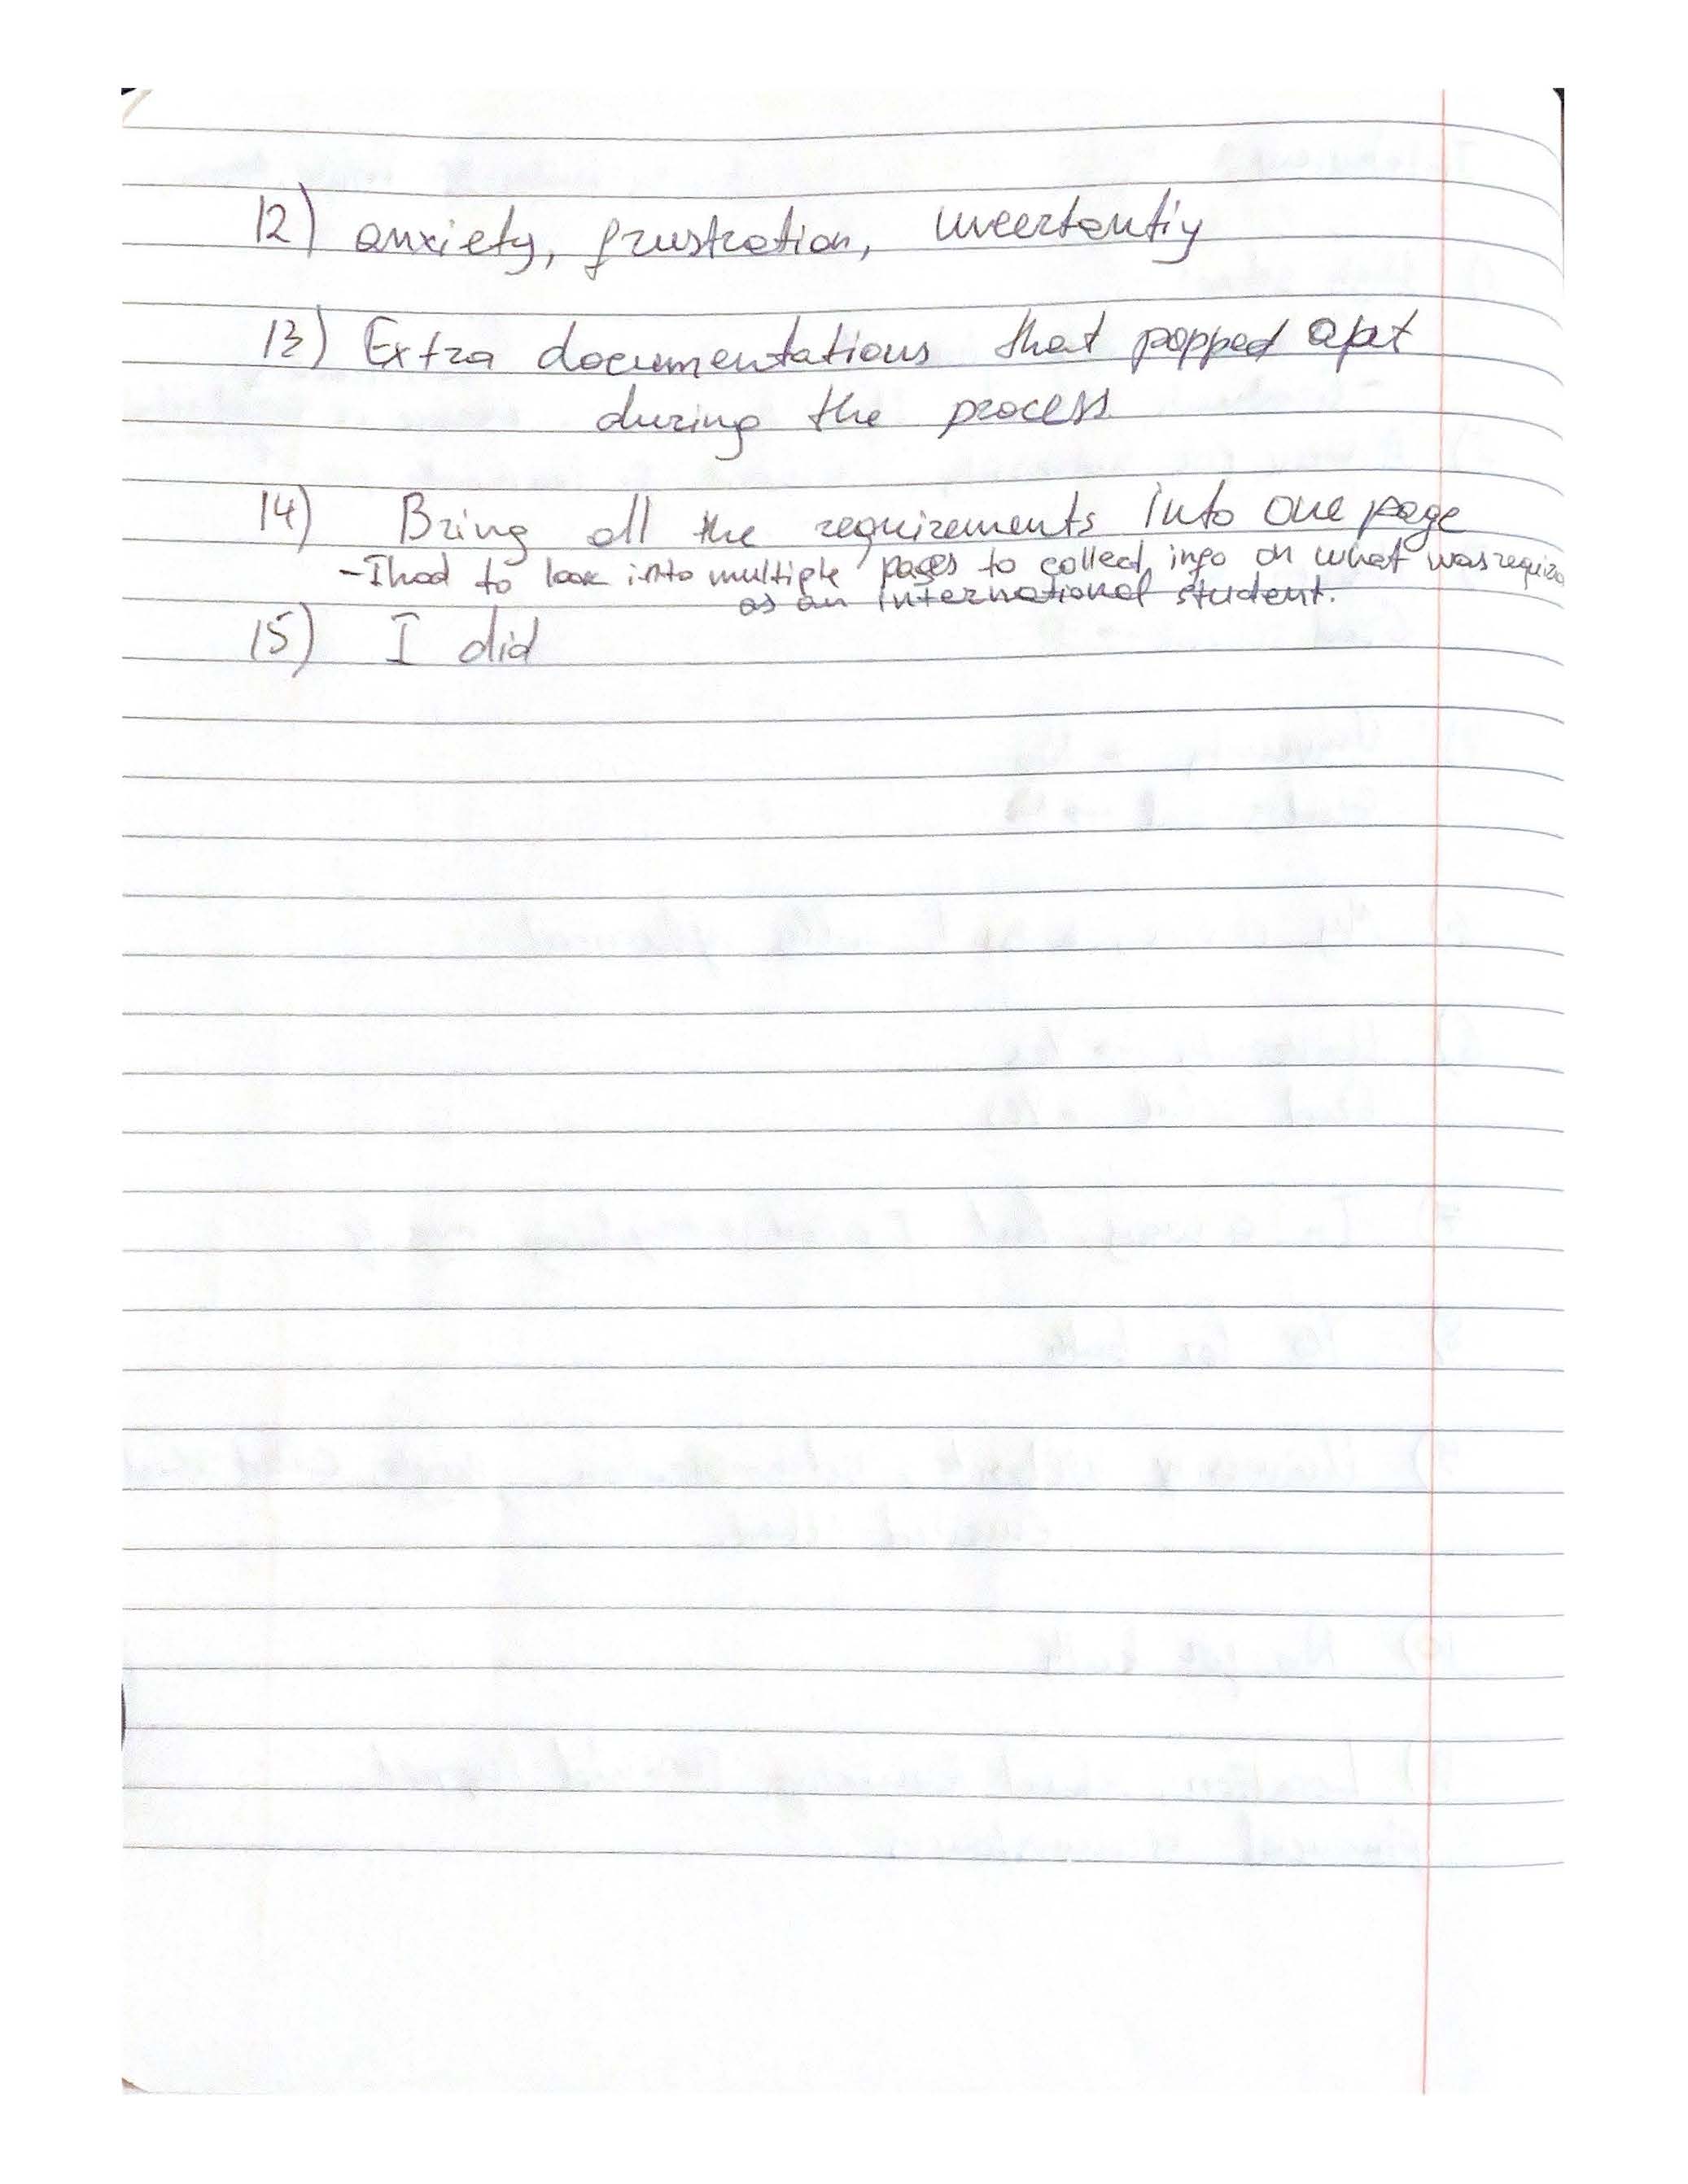 12) anxiety, frustration, uncertantiy
13) Extra documentations that popped
during the process
14) Bring all the requirements into one page
- I had to look into multiple pages to collect info on what was
as an international student.
15) I did